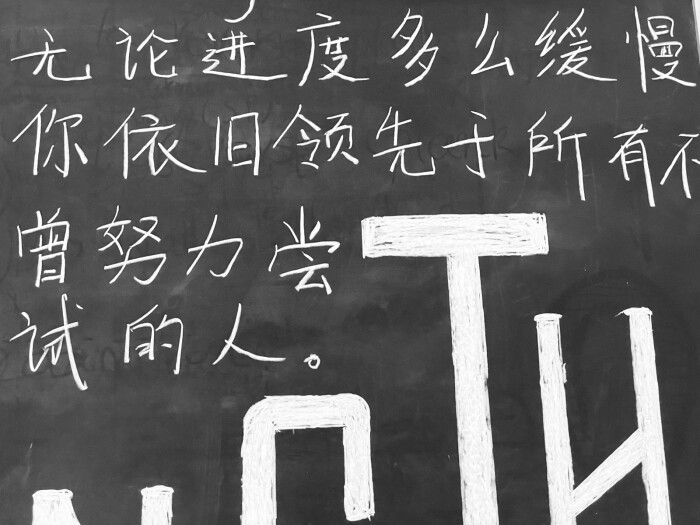 无论进度多么缓慢
你依旧领先于所有不
曾努力尝
试的人。